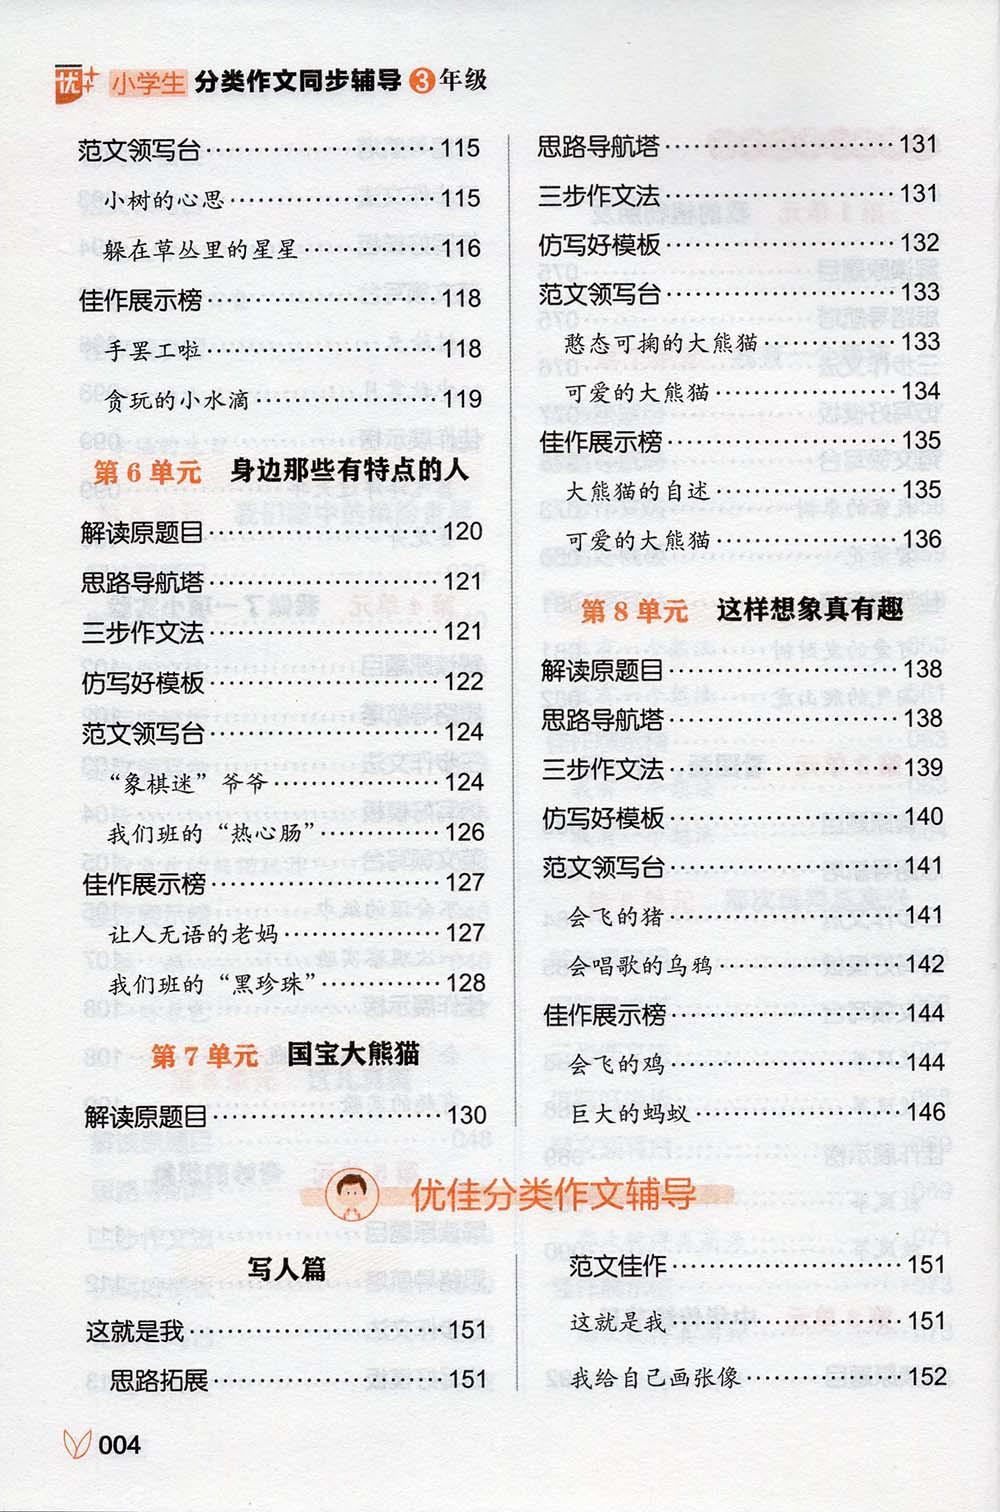 优+ 小学生 分类作文同步辅导 3 年级
范文领写台 115
小树的心思 115
躲在草丛里的星星 116
佳作展示榜 118
手罢工啦 118
贪玩的小水滴 119
第6单元 身边那些有特点的人
解读原题目 120
思路导航塔 121
三步作文法 121
仿写好模板 122
范文领写台 124
“象棋迷”爷爷 124
我们班的“热心肠” 126
佳作展示榜 127
让人无语的老妈 127
我们班的“黑珍珠” 128
第7单元 国宝大熊猫
解读原题目 130
思路导航塔 131
三步作文法 131
仿写好模板 132
范文领写台 133
憨态可掬的大熊猫 133
可爱的大熊猫 134
佳作展示榜 135
大熊猫的自述 135
可爱的大熊猫 136
第8单元 这样想象真有趣
解读原题目 138
思路导航塔 138
三步作文法 139
仿写好模板 140
范文领写台 141
会飞的猪 141
会唱歌的乌鸦 142
佳作展示榜 144
会飞的鸡 144
巨大的蚂蚁 146
优佳分类作文辅导
写人篇
这就是我 151
思路拓展 151
范文佳作 151
这就是我 151
我给自己画张像 152
004